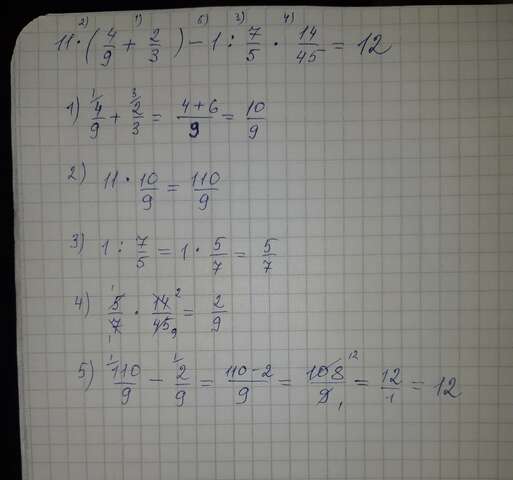 2) 1) 5) 3) 4)
11 · (4/9 + 2/3) − 1 : 7/5 · 14/45 = 12
1) 4/9 + 2/3 = (4+6)/9 = 10/9
2) 11 · 10/9 = 110/9
3) 1 : 7/5 = 1 · 5/7 = 5/7
4) 5/7 · 14/45 = 2/9
5) 110/9 − 2/9 = (110−2)/9 = 108/9 = 12/1 = 12